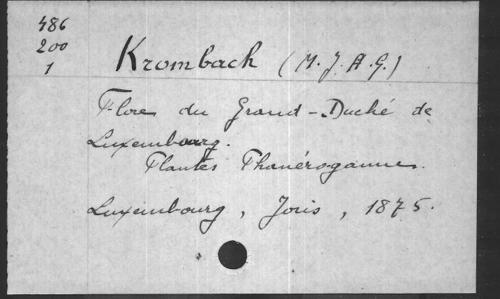 486
200
1
Krombach (M. J. A. G.)
Flore du Grand-Duché de
Luxembourg.
Plantes Phanérogames.
Luxembourg, Joris, 1875.